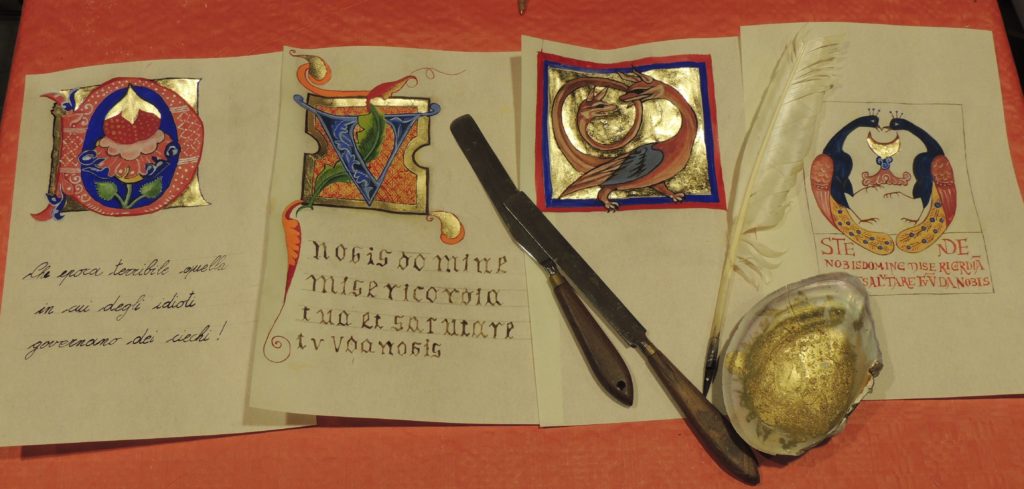 Che epoca terribile quella
in cui degli idioti
governano dei ciechi!
V
nobis do mine
misericordia
tua et salutare
tvv da nobis
STE DE
NOBISDOMINE
SALTARE TVV DA NOBIS